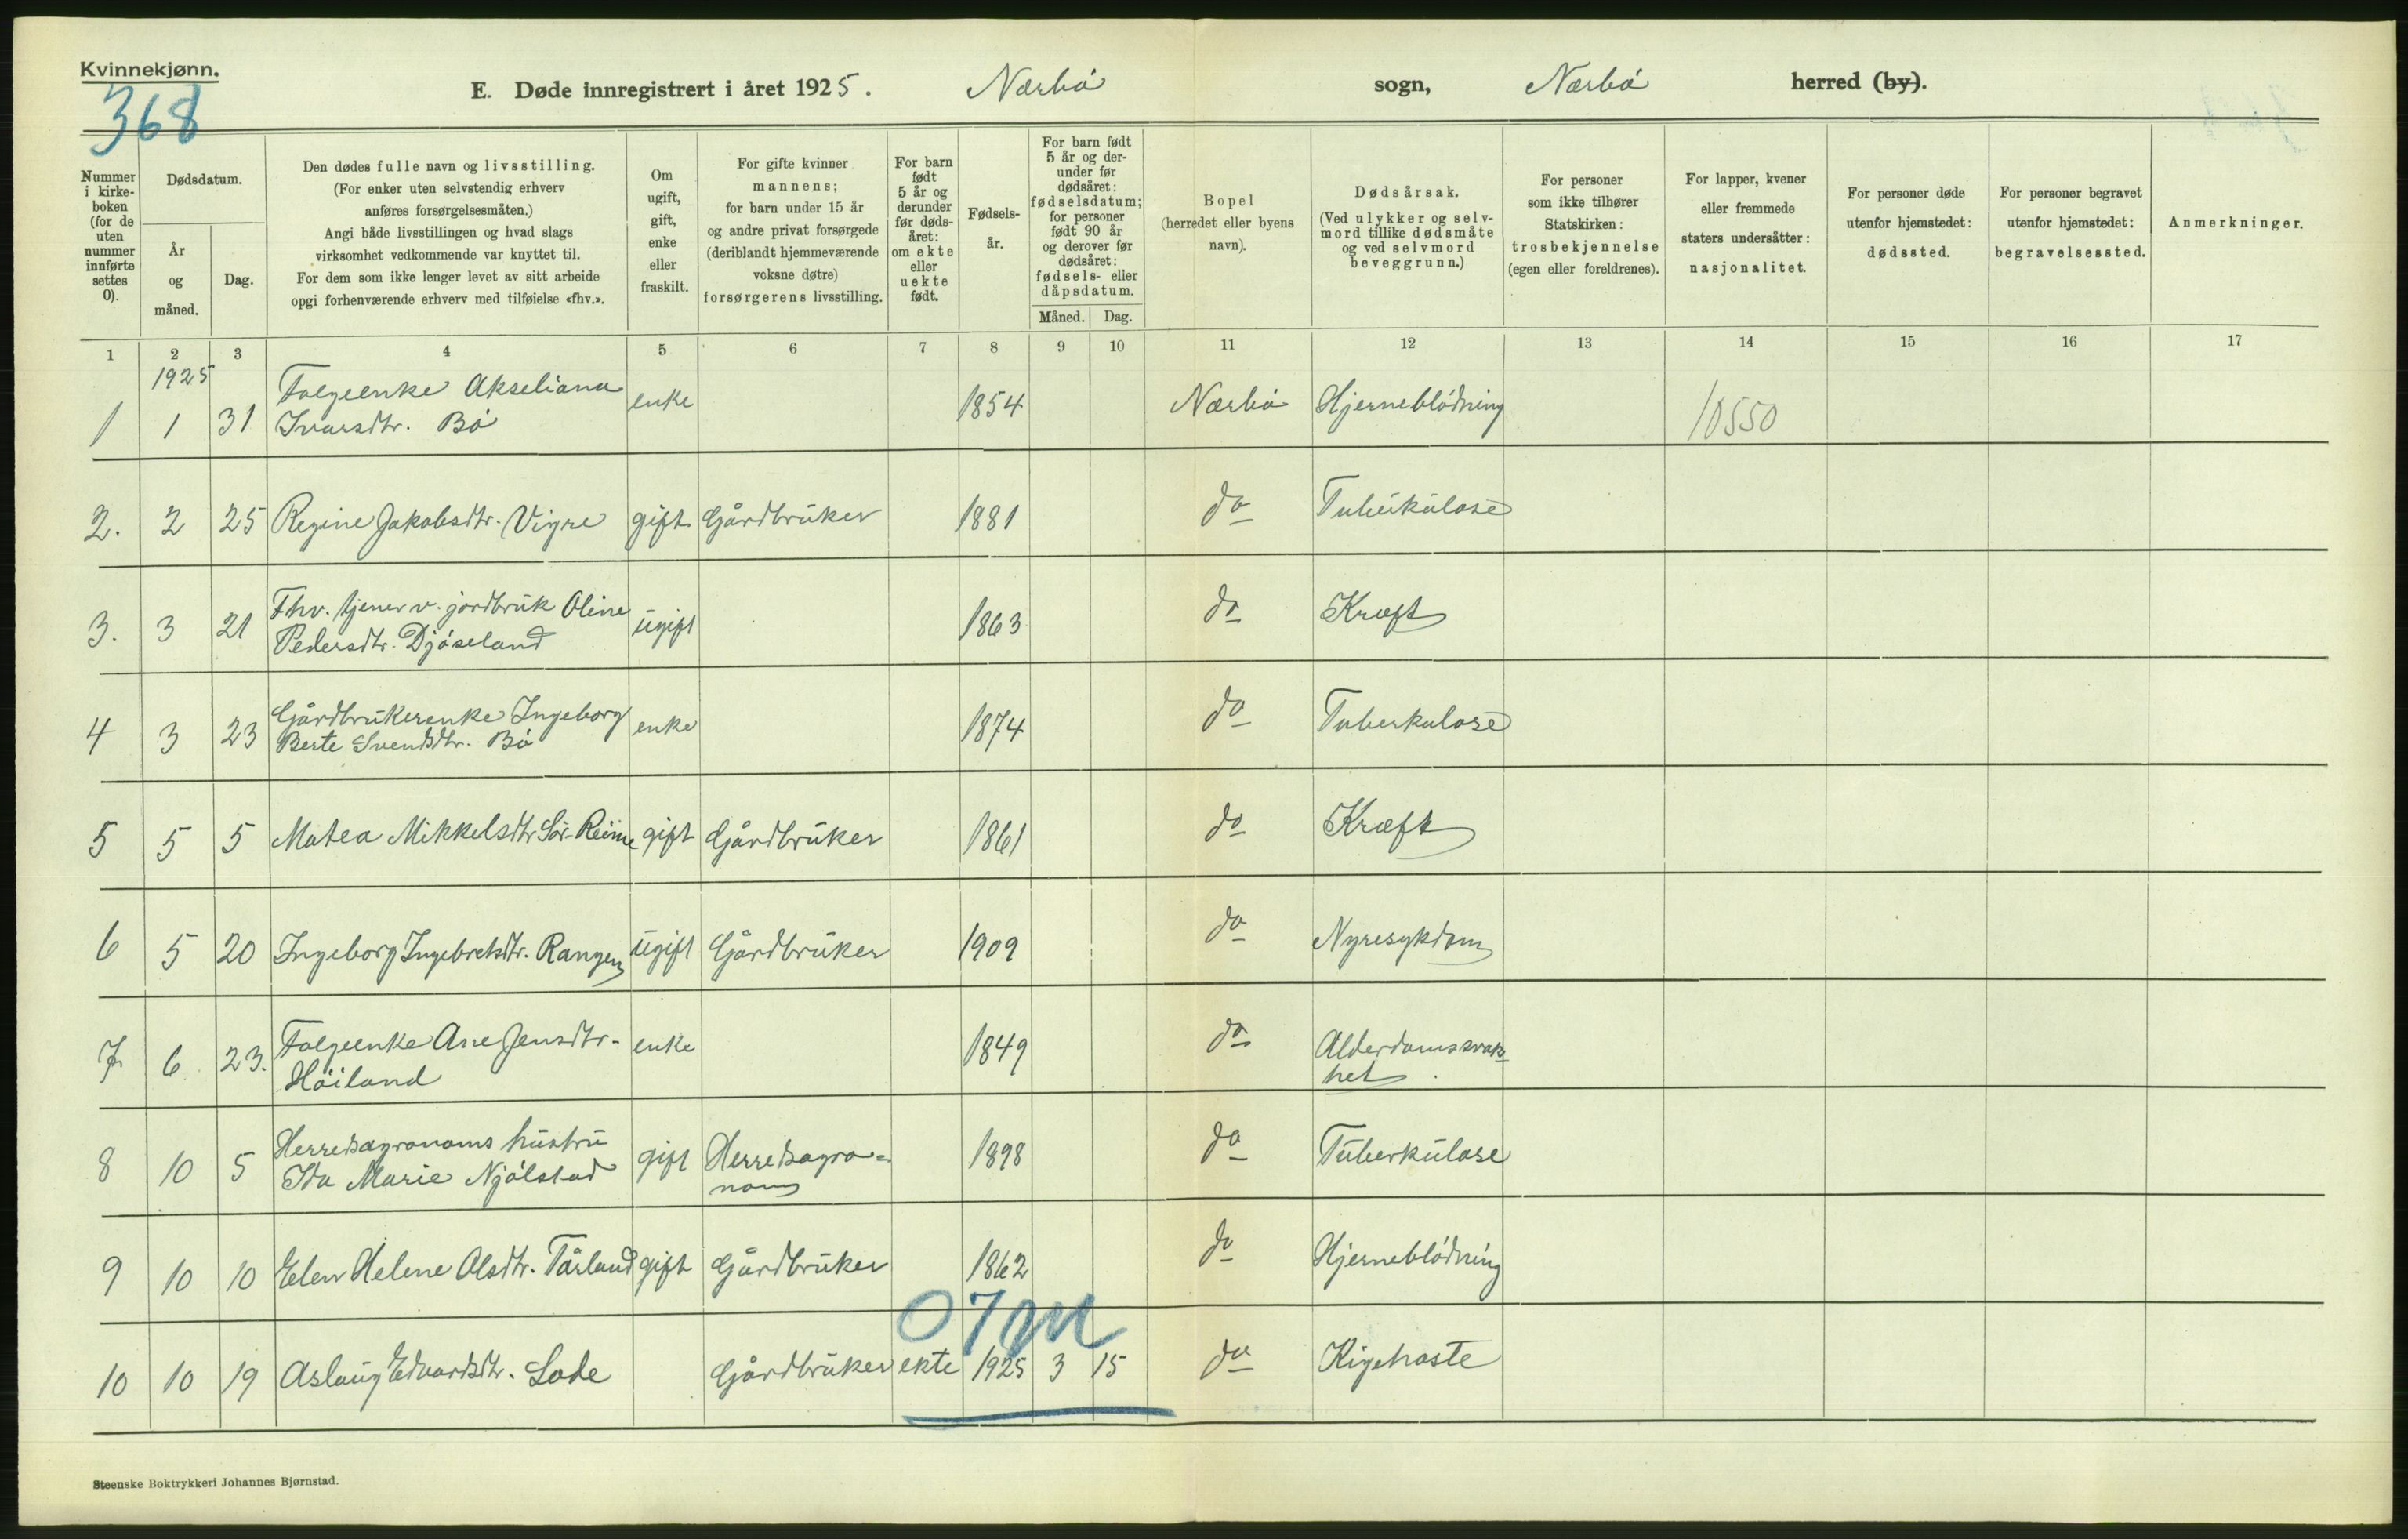 Kvinnekjønn.
368
E. Døde innregistrert i året 1925. Nærbø sogn, Nærbø herred (by).
Nummer i kirke- boken (for de uten nummer innførte settes 0).
Dødsdatum.
År og måned.
Dag.
Den dødes fulle navn og livsstilling.
(For enker uten selvstendig erhverv
anføres forsørgelsesmåten.)
Angi både livsstillingen og hvad slags
virksomhet vedkommende var knyttet til.
For dem som ikke lenger levet av sitt arbeide
opgi forhenværende erhverv med tilføielse «fhv.».
Om ugift, gift, enke eller fraskilt.
For gifte kvinner
mannens;
for barn under 15 år
og andre privat forsørgede
(deriblandt hjemmeværende
voksne døtre)
forsørgerens livsstilling.
For barn født 5 år og derunder før døds- året: om ekte eller uekte født.
Fødsels- år.
For barn født 5 år og der- under før dødsåret: fødselsdatum; for personer født 90 år og derover før dødsåret: fødsels- eller dåpsdatum.
Måned. Dag.
Bopel
(herredet eller byens
navn).
Dødsårsak.
(Ved ulykker og selv-
mord tillike dødsmåte
og ved selvmord
beveggrunn.)
For personer
som ikke tilhører
Statskirken:
trosbekjennelse
(egen eller foreldrenes).
For lapper, kvener
eller fremmede
staters undersåtter:
nasjonalitet.
For personer døde
utenfor hjemstedet:
dødssted.
For personer begravet
utenfor hjemstedet:
begravelsessted.
Anmerkninger.
1 2 3 4 5 6 7 8 9 10 11 12 13 14 15 16 17
1925
1 1 31 Folgeenke Akseliana
Ivarsdtr. Bø enke 1854 Nærbø Hjerneblødning 10550
2. 2 25 Regine Jakobsdtr. Vigre gift Gårdbruker 1881 do Tuberkulose
3. 3 21 Fhv. tjener v. jordbruk Oline
Pedersdtr. Djøseland ugift 1863 do Kræft
4 3 23 Gårdbrukerenke Ingeborg
Berte Svendsdtr. Bø enke 1874 do Tuberkulose
5 5 5 Matea Mikkelsdtr Sør-Reime gift Gårdbruker 1861 do Kræft
6 5 20 Ingeborg Ingebretsdtr. Rangen ugift Gårdbruker 1909 do Nyresykdom
7 6 23. Folgeenke Ane Jensdtr.
Høiland enke 1849 do Alderdomssvak-
het
8 10 5 Herredsagronoms hustru
Ida Marie Njølstad gift Herredsagro-
nom 1898 do Tuberkulose
9 10 10 Elen Helene Olsdtr. Tårland gift Gårdbruker 1862 do Hjerneblødning
07m
10 10 19 Aslaug Edvardsdtr. Lode Gårdbruker ekte 1925 3 15 do Kigehoste
Steenske Boktrykkeri Johannes Bjørnstad.